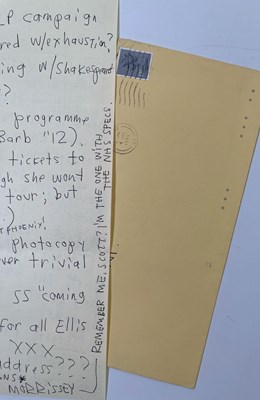 LP CAMPAIGN
red w/EXHAUSTION?
ing w/Shakespeare
??
programme
Barb "12).
tickets to
gh she wont
tour; but
.)
PHOENIX!
photocopy
ver trivial
SS "coming
for all Ellis
XXX
address???
MORRISSEY
REMEMBER ME, SCOTT? I'M THE ONE WITH
THE NHS SPECS.